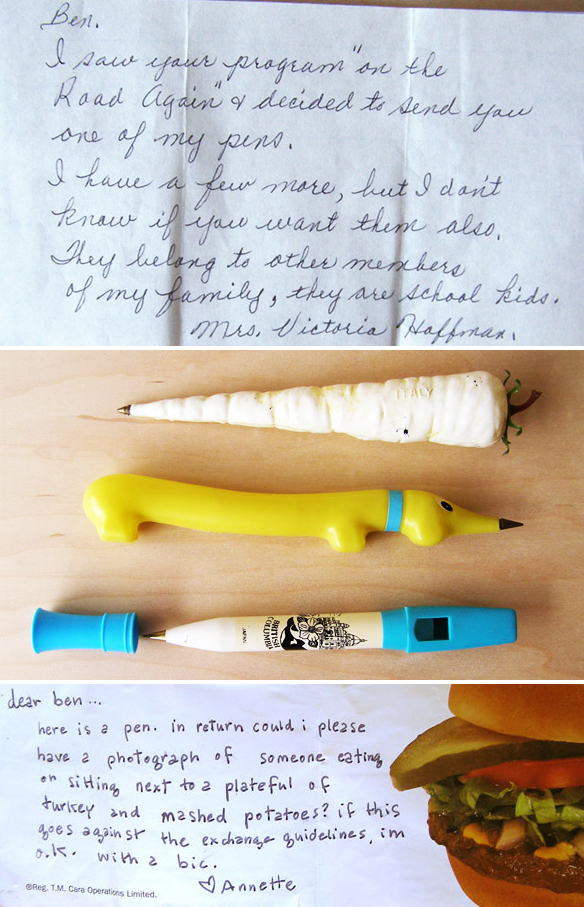 Ben.
I saw your program "on the
Road Again" & decided to send you
one of my pens.
I have a few more, but I don't
know if you want them also.
They belong to other members
of my family, they are school kids.
Mrs. Victoria Hoffman.
ITALY
JAPAN
BRITISH
COLUMBIA
dear ben...
here is a pen. in return could i please
have a photograph of someone eating
or sitting next to a plateful of
turkey and mashed potatoes? if this
goes against the exchange guidelines, im
o.k. with a bic.
♡ Annette
©Reg. T.M. Cara Operations Limited.